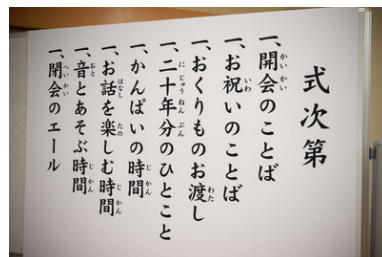 式次第
一、開会のことば
一、お祝いのことば
一、おくりものお渡し
一、二十年分のひとこと
一、かんぱいの時間
一、お話を楽しむ時間
一、音とあそぶ時間
一、閉会のエール